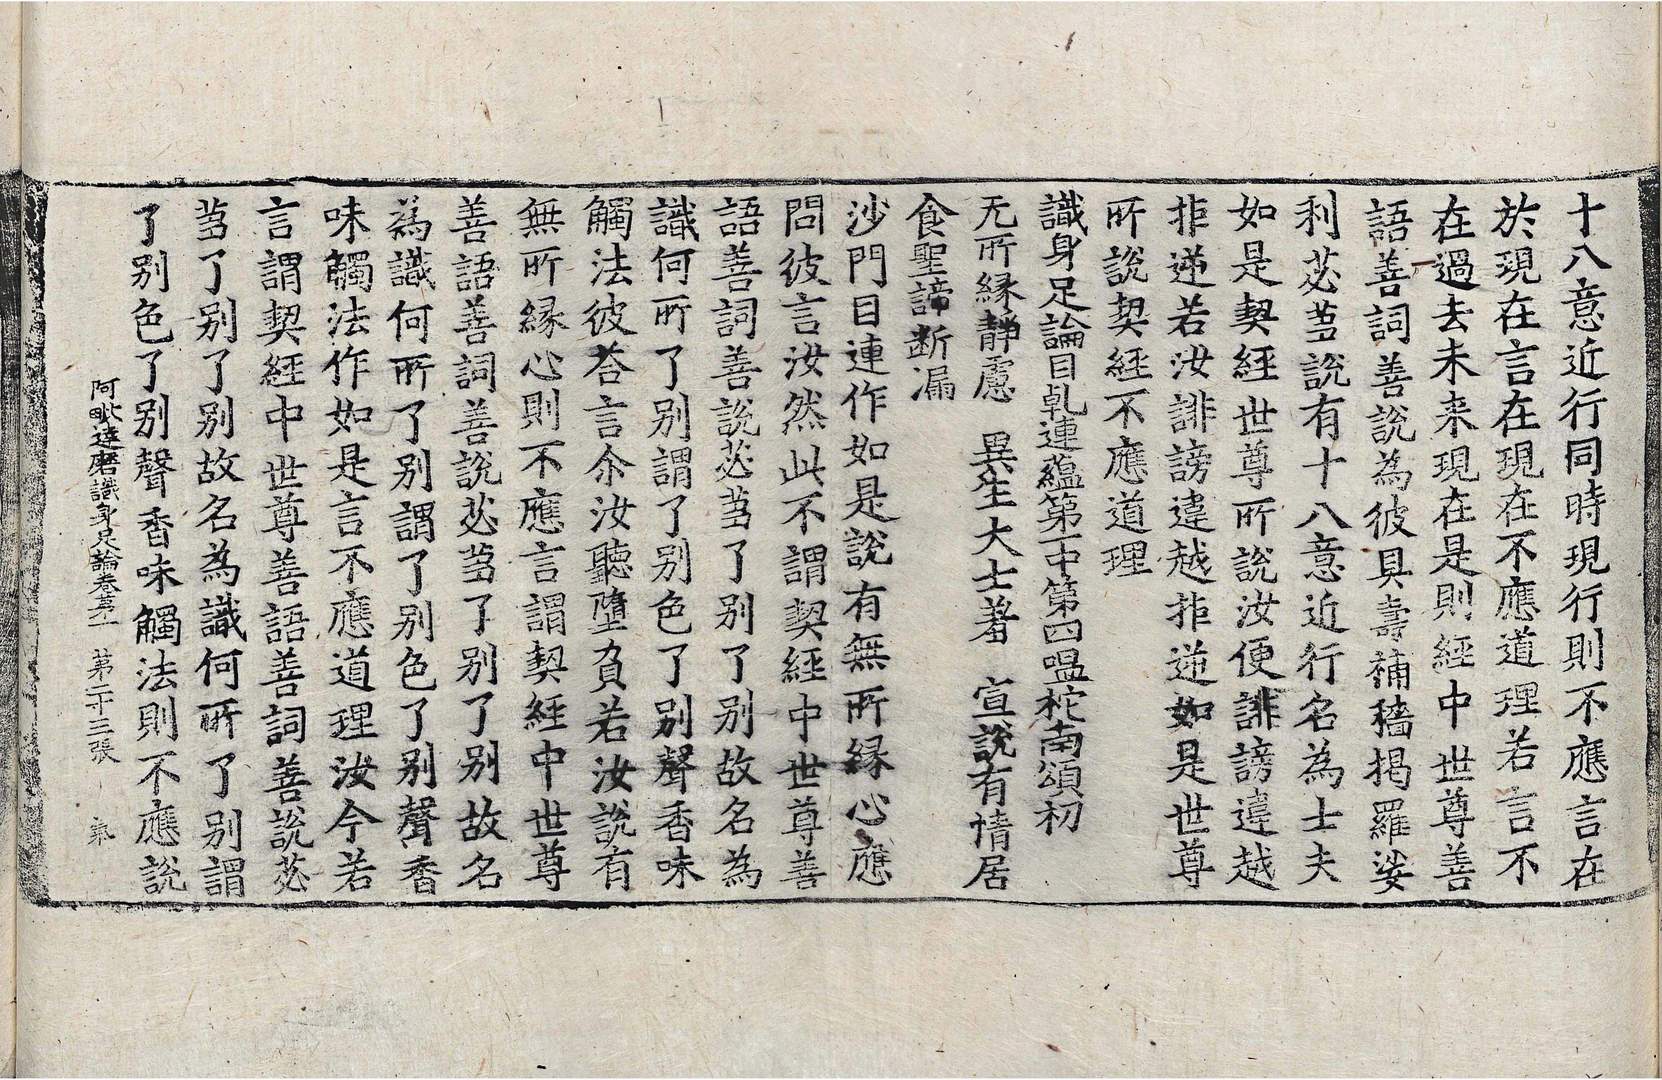 十八意近行同時現行則不應言在
於現在言在現在不應道理若言不
在過去未来現在是則經中世尊善
語善詞善說為彼具壽補穡揭羅娑
利苾蒭說有十八意近行名為士夫
如是契經世尊所說汝便誹謗違越
拒逆若汝誹謗違越拒逆如是世尊
所說契經不應道理
識身足論目乹連蘊第一中第四嗢柁南頌初
无所縁靜慮　異生大士著　宣說有情居
食聖諦斷漏
沙門目連作如是說有無所縁心應
問彼言汝然此不謂契經中世尊善
語善詞善說苾蒭了別了別故名為
識何所了別謂了別色了別聲香味
觸法彼荅言尒汝聽墮負若汝說有
無所縁心則不應言謂契經中世尊
善語善詞善說苾蒭了別了別故名
為識何所了別謂了別色了別聲香
味觸法作如是言不應道理汝今若
言謂契經中世尊善語善詞善說苾
蒭了別了別故名為識何所了別謂
了別色了別聲香味觸法則不應說
阿毗達磨識身足論卷苐一　第二十三張